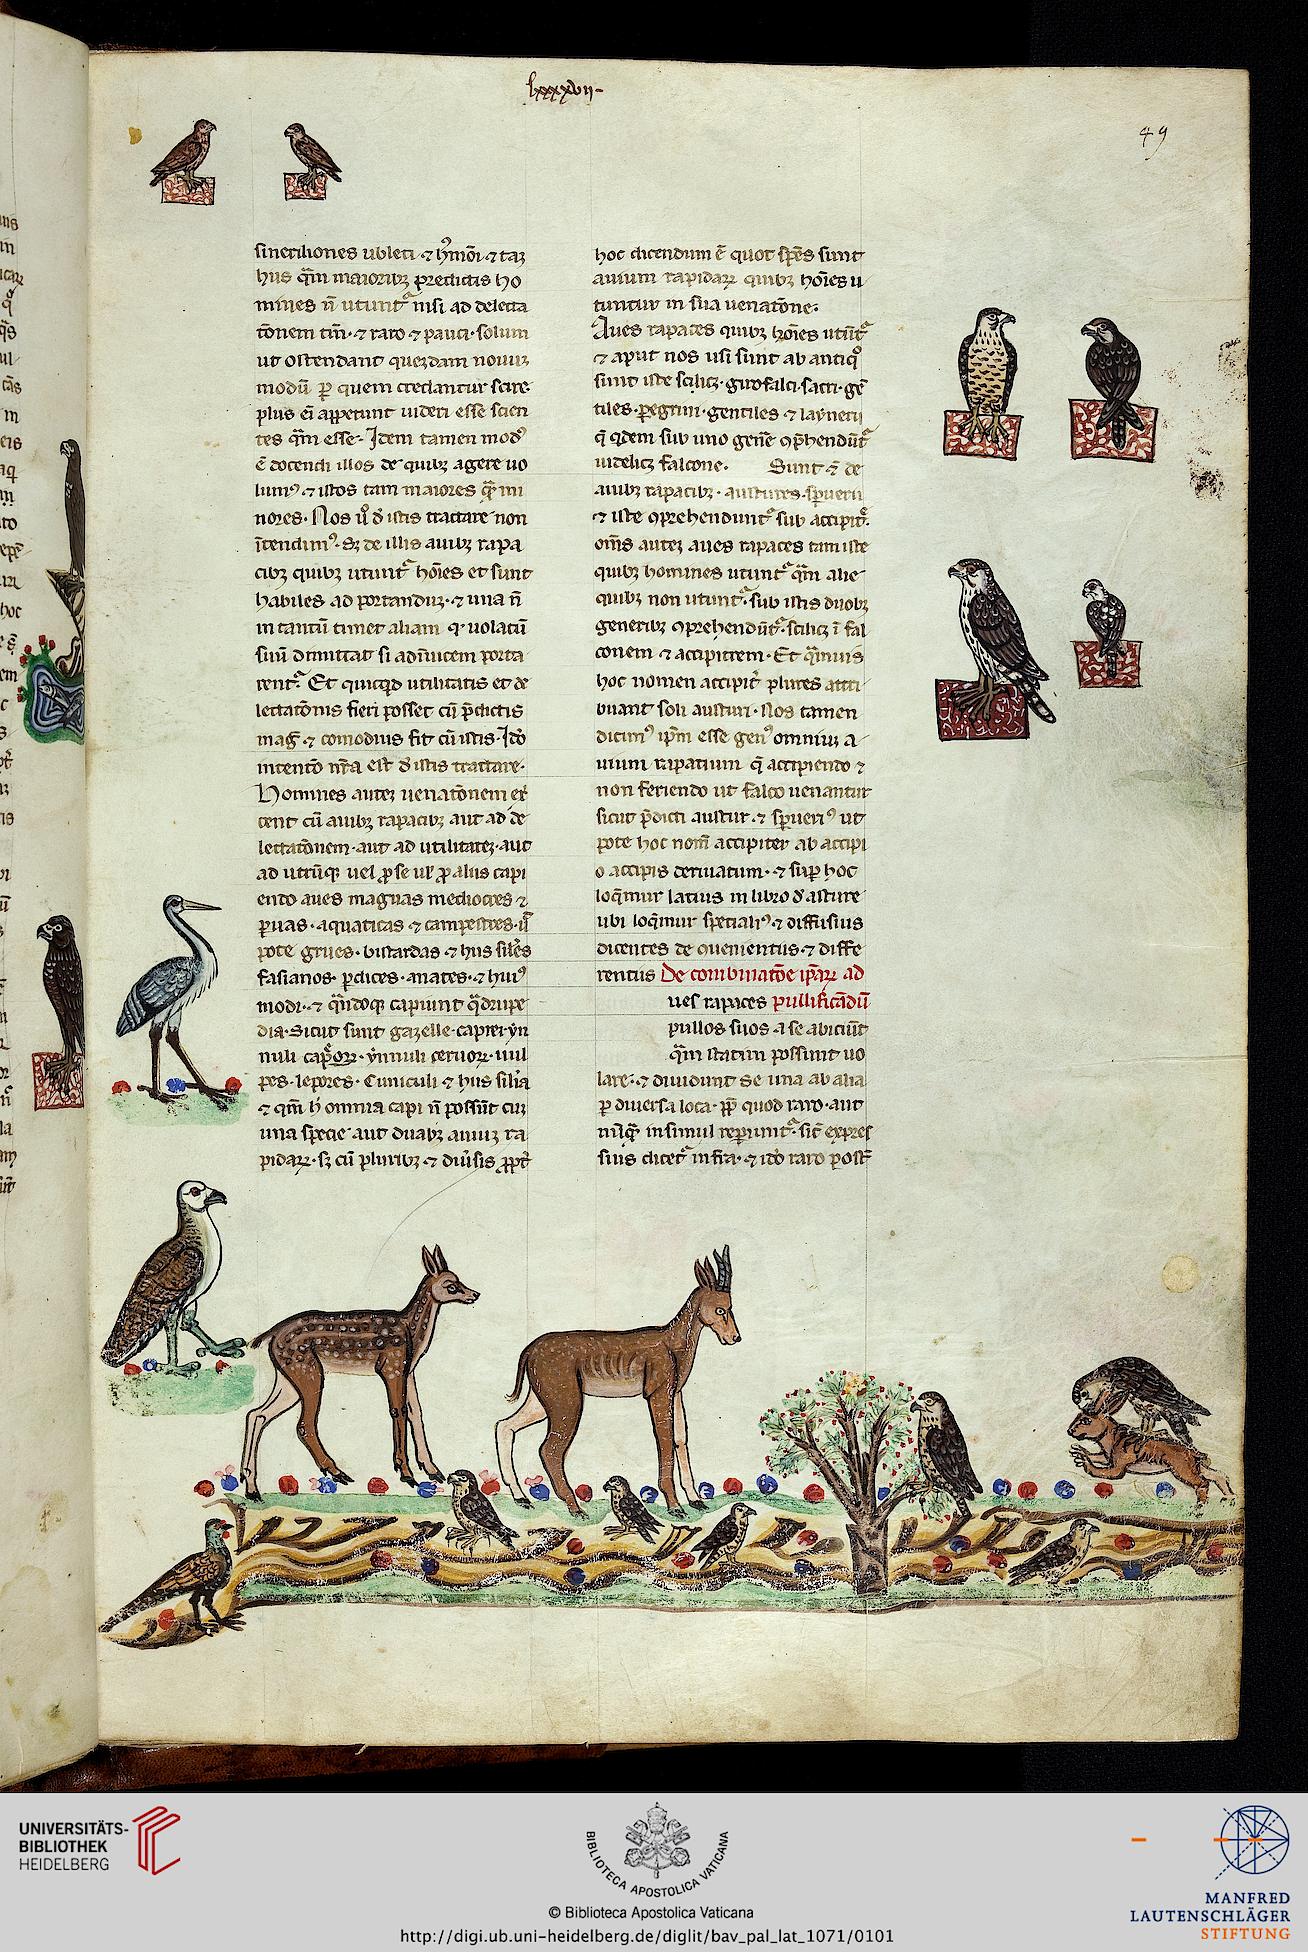 lxxxxvii
49
sineriliones ubleti ⁊ hͥmōi ⁊ taʒ
hus q̄m maioribꝫ predictis ho
mines n̄ utunt᷑ nisi ad delecta
tōnem tm̄ ⁊ raro ⁊ pauci solum
ut ostendant quendam nouuꝫ
modū ꝑ quem credantur scire
plus eī appetunt uideri esse scien
tes q̄m esse. Idem tamen modꝰ
ē docendi illos de quibꝫ agere uo
lumꝰ ⁊ istos tam maiores q̄ mi
nores. Nos ū d̓ istis tractare non
ītendimꝰ. Sꝫ de illis auibꝫ rapa
cibꝫ quibꝫ utunt᷑ hōies et sunt
habiles ad portanduꝫ ⁊ una n̄
in tantū timet aliam qꝰ uolatū
suū dimittat si adīuicem porta
rent᷑. Et quicqd utilitatis et de
lectatōnis fieri posset cū p̄dictis
mag̓ ⁊ comodius fit cū istis. Ido
intentō nr̄a est d̓ istis tractare.
Homines auteꝫ uenatōnem ex̓
cent cū auibꝫ rapacibꝫ aut ad de
lectatōnem aut ad utilitateꝫ aut
ad utrūqꝫ uel ꝓ se ul̓ ꝓ aliis capi
endo aues magnas mediocres ⁊
ꝑuas aquaticas ⁊ campestres ū
pote grues bistardas ⁊ hus sil̓es
fasianos ꝑdices anates ⁊ huiꝰ
modi ⁊ qn̄doqꝫ capiunt q̄drupe
dia. Sicut sunt gazelle caprer yn
nuli cap̓oꝝ ynnuli ceruoꝝ uul
pes lepores cuniculi ⁊ hus silia
⁊ qm̄ h̓ omnia capi n̄ possūt cuꝫ
una specie aut duabꝫ auiuꝫ ra
pidaꝝ sꝫ cū pluribꝫ ⁊ diūsis ꝓpt̓
hoc dicendum ē quot spēs sunt
auium rapidaꝝ quibꝫ hōies u
tuntur in sua uenatōne.
Aues rapaces quibꝫ hōies utūt᷑
⁊ aput nos usi sunt ab antiqͦ
sunt iste scilicꝫ girofalci sacri gē
tiles peregrini gentiles ⁊ laynerii
q̄ qdem sub uno gen̄e ꝯp̄hendūt᷑
uidelicꝫ falcone. Sunt ⁊ de
auibꝫ rapacibꝫ austures spuerii
⁊ iste ꝯprehendunt᷑ sub accipit̓.
om̄s auteꝫ aues rapaces tam iste
quibꝫ homines utunt᷑ q̄m alie
quibꝫ non utunt᷑ sub istis duobꝫ
generibꝫ ꝯprehendūt᷑ scilicꝫ ī fal
conem ⁊ accipitrem. Et q̄muis
hoc nomen accipit̓ plures attri
buant soli austuri. Nos tamen
dicimꝰ ip̄m esse genꝰ omniuꝫ a
uium rapatium q̄ accipiendo ⁊
non feriendo ut falco uenantur
sicut p̄dicti austur ⁊ spueriꝰ ut
pote hoc nom̄ accipiter ab accipi
o accipis deriuatum ⁊ suꝑ hoc
loq̄mur latius in libro d̓ asture
ubi loq̄mur spetialiꝰ ⁊ diffusius
dicentes de ꝯuenientiis ⁊ diffe
rentiis De combinatōe ip̄aꝝ ad
ues rapaces pullificādū
pullos suos a se abiciūt
q̄m statim possunt uo
lare ⁊ diuidunt se una ab alia
ꝑ diuersa loca ꝓp̄ quod raro aut
nūq̄ insimul repiunt᷑ sic̄ expres
sius dicet᷑ infra ⁊ ido raro post
UNIVERSITÄTS-
BIBLIOTHEK
HEIDELBERG
BIBLIOTECA APOSTOLICA VATICANA
© Biblioteca Apostolica Vaticana
http://digi.ub.uni-heidelberg.de/diglit/bav_pal_lat_1071/0101
MANFRED
LAUTENSCHLÄGER
STIFTUNG